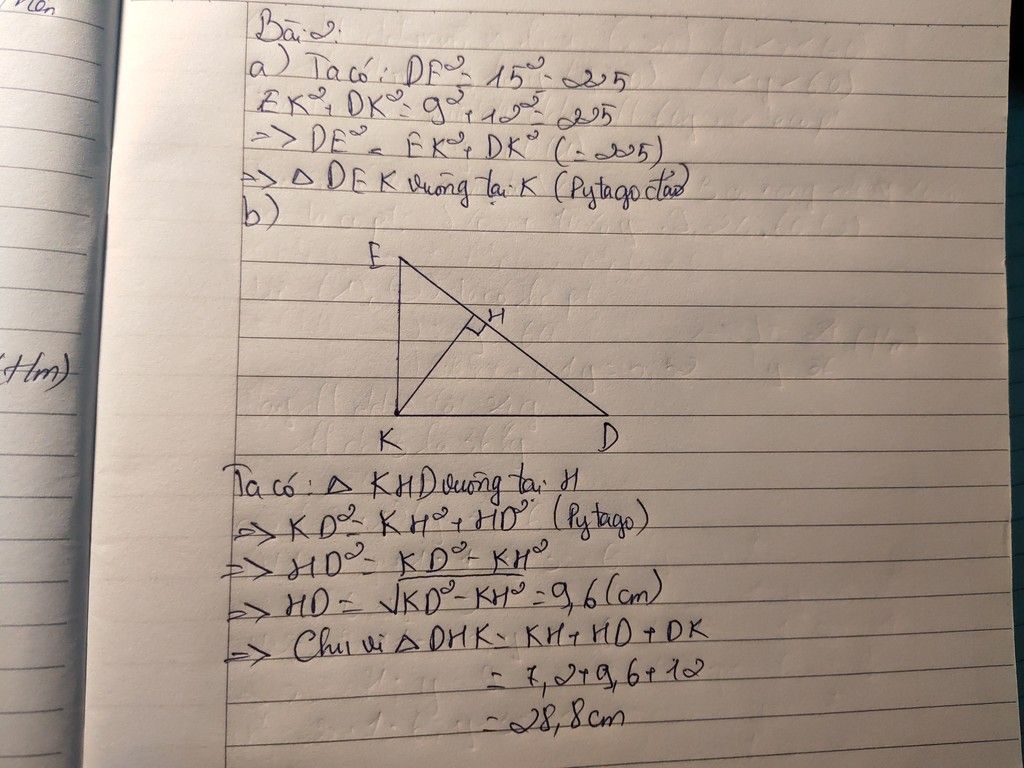 Bài 2:
a) Ta có: DE² = 15² = 225
EK² + DK² = 9² + 12² = 225
=> DE² = EK² + DK² (= 225)
=> △ DEK vuông tại K (Pytago đảo)
b)
E
H
K D
(Hm)
Ta có: △ KHD vuông tại H
=> KD² = KH² + HD² (Pytago)
=> HD² = KD² - KH²
=> HD = √KD² - KH² = 9,6 (cm)
=> Chu vi △ DHK = KH + HD + DK
= 7,2 + 9,6 + 12
= 28,8cm